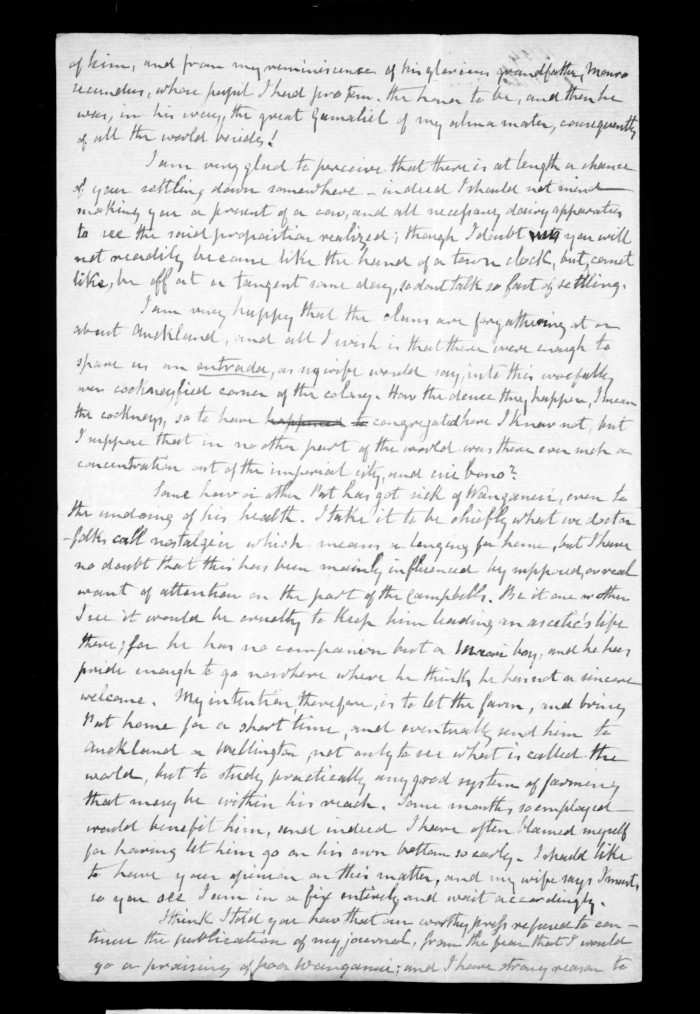 of him, and from my reminiscence of his glorious grandfather, Monro
secundus, whose pupil I had pro tem. the honor to be, and then he
was, in his way, the great Gamaliel of my alma mater, consequently
of all the world besides!
I am very glad to perceive that there is at length a chance
of your settling down somewhere – indeed I should not mind
making you a present of a cow, and all necessary dairy apparatus
to see the said proposition realized; though I doubt you will
not readily become like the hand of a town clock, but, comet
like, be off at a tangent some day, so dont talk so fast of settling.
I am very happy that the clans are forgathering at or
about Auckland, and all I wish is that there were enough to
spare us an entrada, as my wife would say, into this woefully
over cockneyfied corner of the colony. How the deuce they happen, I mean
the cockneys, so to have happened to congregated here I know not, but
I suppose that in no other part of the world was there ever such a
concentration out of the imperial city, and cui bono?
Some how or other Pat has got sick of Wanganui, even to
the undoing of his health. I take it to be chiefly what we doctor
-folks call nostalgia which means a longing for home, but I have
no doubt that this has been mainly influenced by supposed, or real
want of attention on the part of the Campbells. Be it one or other
I see it would be cruelty to keep him leading an ascetic's life
there; for he has no companion but a maori boy, and he has
pride enough to go nowhere where he thinks he has not a sincere
welcome. My intention, therefore, is to let the farm, and bring
Pat home for a short time, and eventually send him to
Auckland or Wellington, not only to see what is called the
world, but to study practically any good system of farming
that may be within his reach. Some months so employed
would benefit him, and indeed I have often blamed myself
for having let him go on his own bottom so early. I should like
to have your opinion on this matter, and my wife says I must,
so you see I am in a fix entirely and wait accordingly.
I think I told you how that our worthy press refused to con-
tinue the publication of my journal, from the fear that I would
go a praising of poor Wanganui; and I have strong reason to